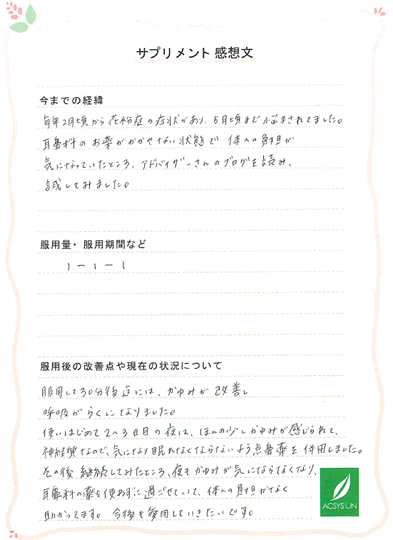 サプリメント 感想文
今までの経緯
毎年2月頃から花粉症の症状があり、5月頃まで悩まされてました。
耳鼻科のお薬がかかせない状態で 体への負担が
気になっていたところ、アドバイザーさんのブログを読み、
試してみました。
服用量・服用期間など
1-1-1
服用後の改善点や現在の状況について
服用して30分後位には、かゆみが改善し
呼吸がらくになりました。
使いはじめて2~3日目の夜は、ほんの少しかゆみが感じられて、
神経質なので、気になり眠れなくならないよう点鼻薬を併用しました。
その後 継続してみたところ、夜もかゆみが気にならなくなり、
耳鼻科の薬を使わずに過ごせていて、体への負担がなく
助かってます。今後も愛用していきたいです。
ACSYSUN